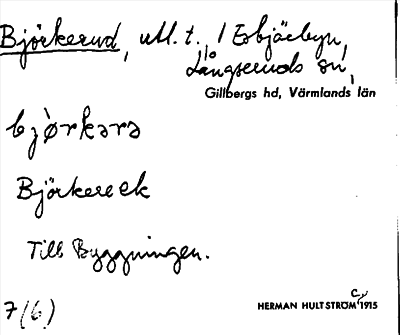 Björkerud, utl. t. 1/10 Esbjörbyn,
Långseruds sn,
Gillbergs hd, Värmlands län
bjørkərə
Björkereek
Till Byggningen.
7 (6)
HERMAN HULTSTRÖM 1915